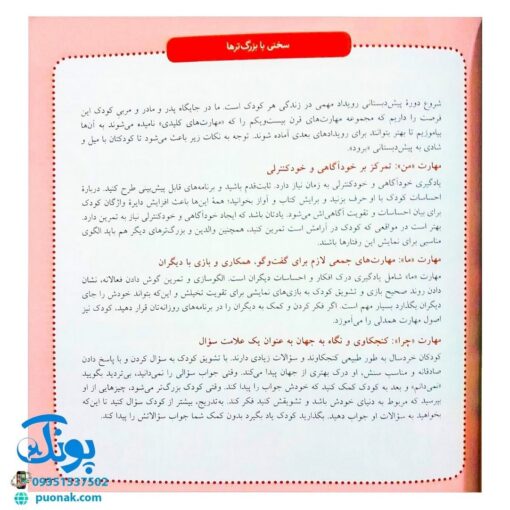 سخنی با بزرگ‌ترها
شروع دورهٔ پیش‌دبستانی رویداد مهمی در زندگی هر کودک است. ما در جایگاه پدر و مادر و مربی کودک این
فرصت را داریم که مجموعه مهارت‌های قرن بیست‌ویکم را که «مهارت‌های کلیدی» نامیده می‌شوند به آن‌ها
بیاموزیم تا بهتر بتوانند برای رویدادهای بعدی آماده شوند. توجه به نکات زیر باعث می‌شود تا کودکتان با میل و
شادی به پیش‌دبستانی «برود».
مهارت «من»: تمرکز بر خودآگاهی و خودکنترلی
یادگیری خودآگاهی و خودکنترلی به زمان نیاز دارد. ثابت‌قدم باشید و برنامه‌های قابل پیش‌بینی طرح کنید. دربارهٔ
احساسات کودک با او حرف بزنید و برایش کتاب و آواز بخوانید؛ همهٔ این‌ها باعث افزایش دایرهٔ واژگان کودک
برای بیان احساسات و تقویت آگاهی‌اش می‌شود. یادتان باشد که ایجاد خودآگاهی و خودکنترلی نیاز به تمرین دارد.
بهتر است در مواقعی که کودک در آرامش است تمرین کنید، همچنین والدین و بزرگ‌ترهای دیگر هم باید الگوی
مناسبی برای نمایش این رفتارها باشند.
مهارت «ما»: مهارت‌های جمعی لازم برای گفت‌وگو، همکاری و بازی با دیگران
مهارت «ما» شامل یادگیری درک افکار و احساسات دیگران است. الگوسازی و تمرین گوش دادن فعالانه، نشان
دادن روند صحیح بازی و تشویق کودک به بازی‌های نمایشی برای تقویت تخیلش و این‌که بتواند خودش را جای
دیگران بگذارد بسیار مهم است. اگر فکر کردن و کمک به دیگران را در برنامه‌های روزانه‌تان قرار دهید، کودک نیز
اصول مهارت همدلی را می‌آموزد.
مهارت «چرا»: کنجکاوی و نگاه به جهان به عنوان یک علامت سؤال
کودکان خردسال به طور طبیعی کنجکاوند و سؤالات زیادی دارند. با تشویق کودک به سؤال کردن و با پاسخ دادن
صادقانه و مناسب سنش، او درک بهتری از جهان پیدا می‌کند. وقتی جواب سؤالی را نمی‌دانید، بی‌تردید بگویید
«نمی‌دانم» و بعد به کودک کمک کنید که خودش جواب را پیدا کند. وقتی کودک بزرگ‌تر می‌شود، چیزهایی از او
بپرسید که مربوط به دنیای خودش باشد و تشویقش کنید فکر کند. به‌تدریج، بیشتر از کودک سؤال کنید تا این‌که
بخواهید به سؤالات او جواب دهید. بگذارید کودک یاد بگیرد بدون کمک شما جواب سؤالاتش را پیدا کند.
پونک
09351937502
puonak.com